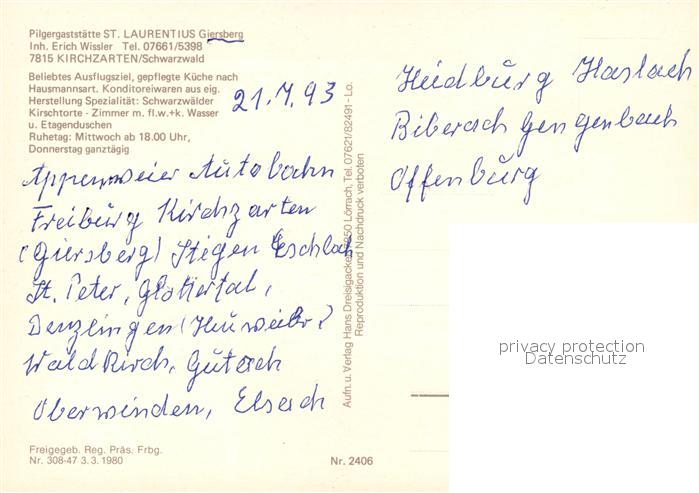 Pilgergaststätte ST. LAURENTIUS Giersberg
Inh. Erich Wissler Tel. 07661/5398
7815 KIRCHZARTEN/Schwarzwald
Beliebtes Ausflugsziel, gepflegte Küche nach
Hausmannsart. Konditoreiwaren aus eig.
Herstellung Spezialität: Schwarzwälder
Kirschtorte - Zimmer m. fl.w.+k. Wasser
u. Etagenduschen
Ruhetag: Mittwoch ab 18.00 Uhr,
Donnerstag ganztägig
21.7.93
Appenweier Autobahn
Freiburg Kirchzarten
(Giersberg) Stegen Eschbach
St. Peter, Glottertal,
Denzlingen (Heuweiler)
Waldkirch, Gutach
Oberwinden, Elzach
Freigegeb. Reg. Präs. Frbg.
Nr. 308-47 3.3.1980
Nr. 2406
Aufn. u. Verlag Hans Dreisigacker, 7850 Lörrach, Tel. 07621/82491 - Lo.
Reproduktion und Nachdruck verboten
Haslach
Biberach Gengenbach
Offenburg
privacy protection
Datenschutz